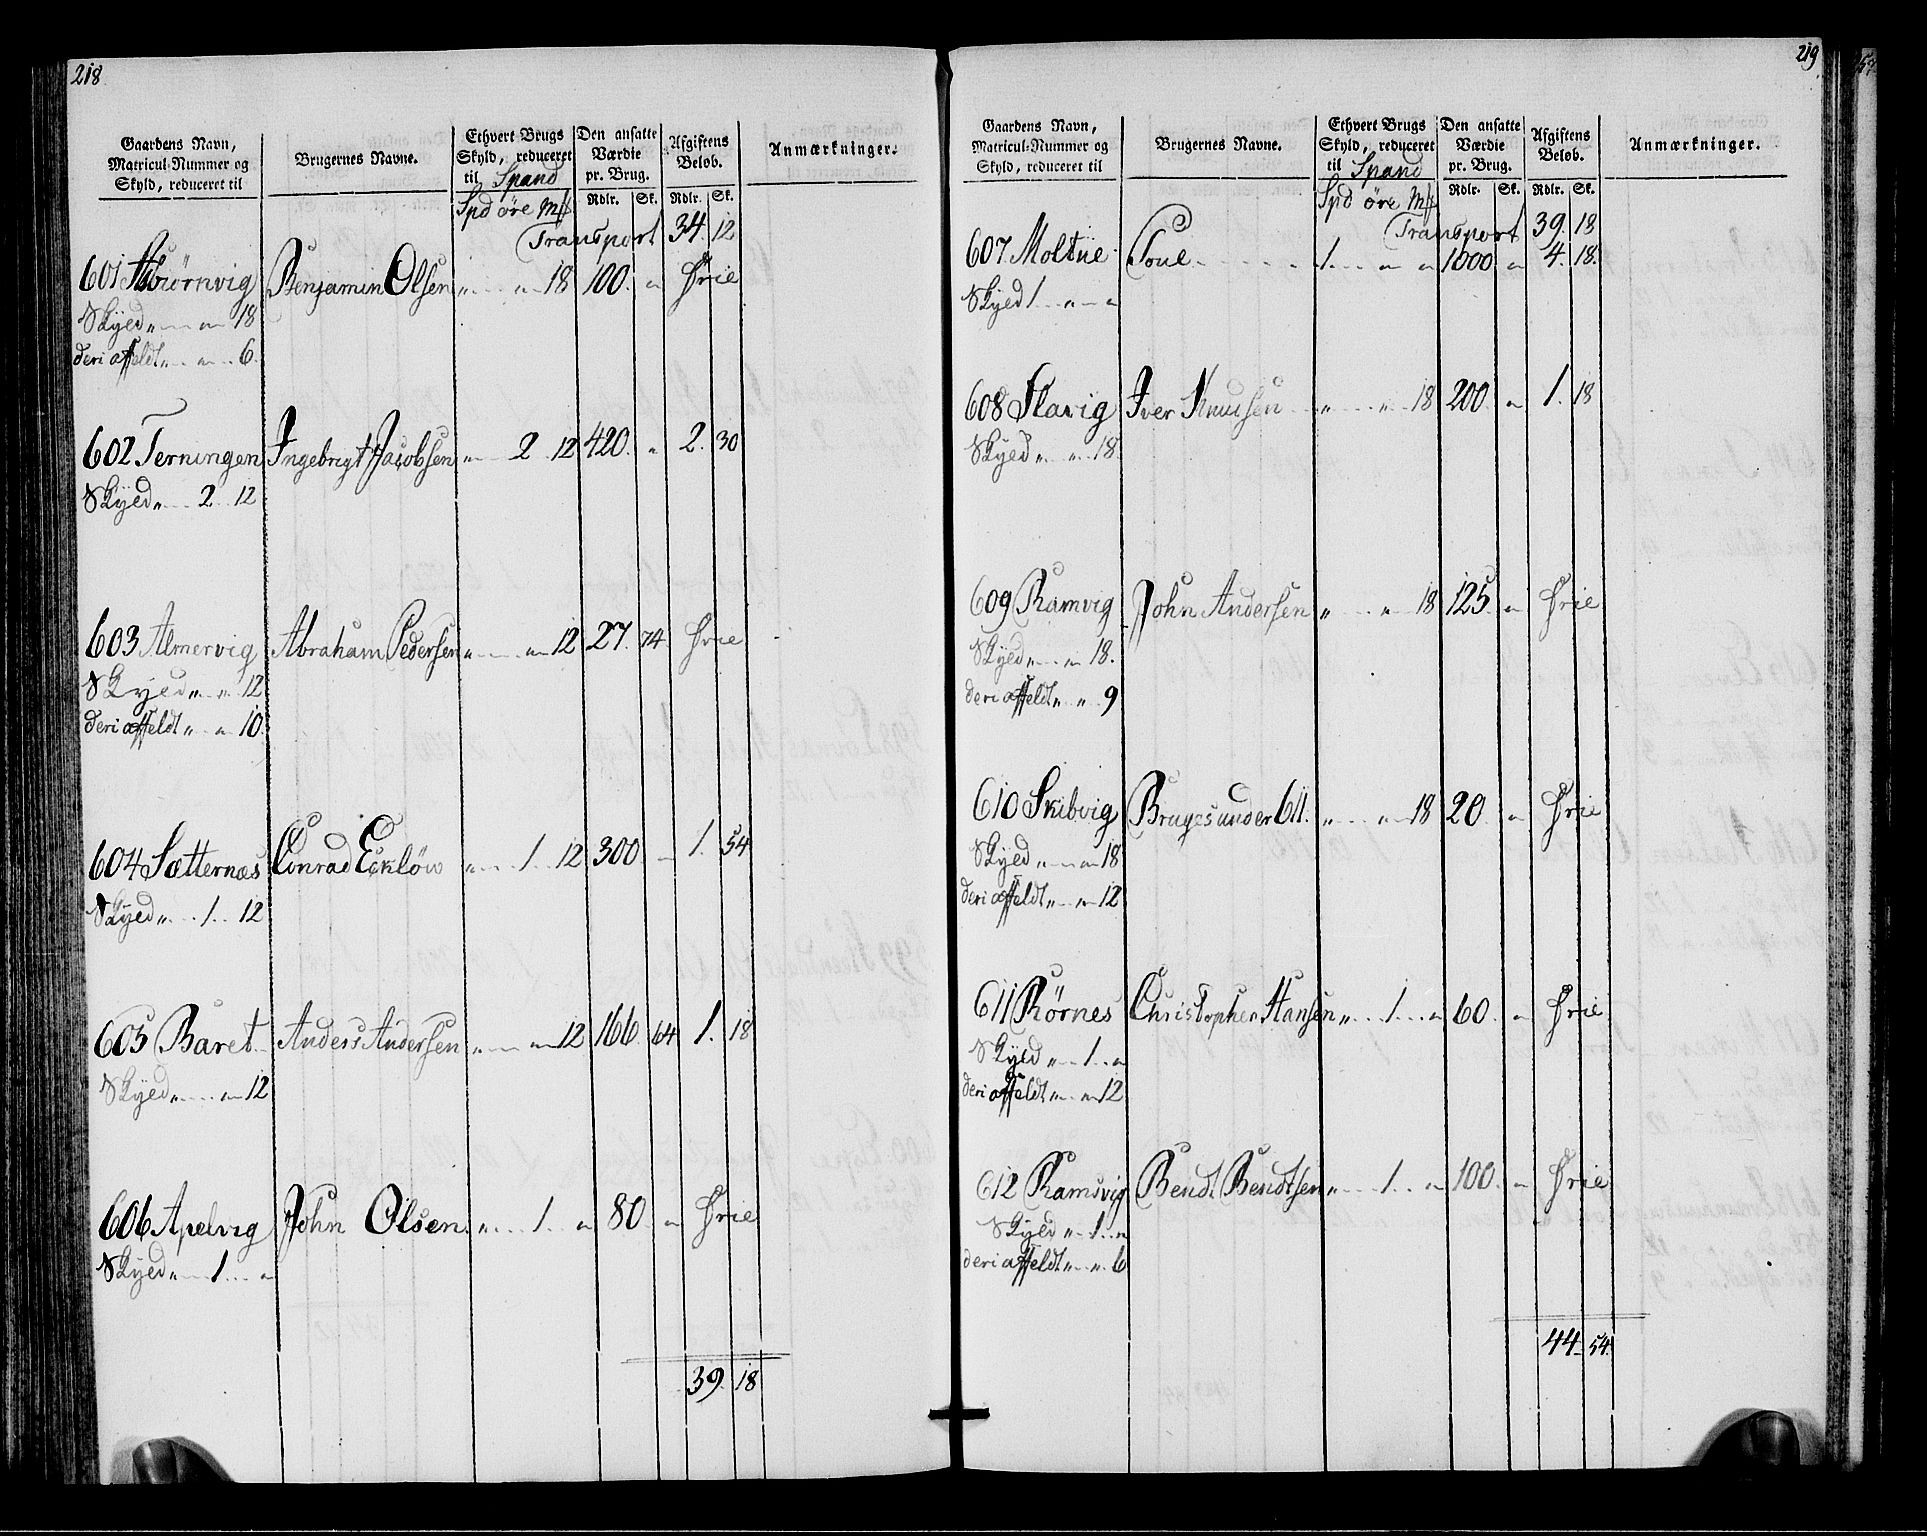 218
Gaardens Navn, Matricul-Nummer og Skyld, reduceret til
Brugernes Navne.
Ethvert Brugs Skyld, reduceret til Spand
Den ansatte Værdie pr. Brug.
Afgiftens Beløb.
Anmærkninger.
Spd øre Mk Rdlr. Sk. Rdlr. Sk.
Transport 34. 12
601 Asbiørnvig Benjamin Olsen „ „ 18 100. „ Frie
Skyld „ „ 18
deri affeldt „ „ 6.
602 Terningen Ingebrigt Jacobsen „ 2 12 420. „ 2. 30
Skyld „ 2 12
603 Almervig Abraham Pedersen „ „ 12 27. 74 Frie
Skyld „ „ 12
deri affeldt „ „ 10.
604 Sætternæs Conrad Ecklöw „ 1 12 300 „ 1. 54
Skyld „ 1 12
605 Baret Anders Andersen „ „ 12 166 64 1. 18
Skyld „ „ 12
606 Apelvig John Olsen „ 1 „ 80 „ Frie
Skyld „ 1 „
39. 18
219
Gaardens Navn, Matricul-Nummer og Skyld, reduceret til
Brugernes Navne.
Ethvert Brugs Skyld, reduceret til Spand
Den ansatte Værdie pr. Brug.
Afgiftens Beløb.
Anmærkninger.
Spd øre Mk Rdlr. Sk. Rdlr. Sk.
Transport 39. 18
607 Moltue Toue 1 „ „ 1000 „ 4. 18.
Skyld 1 „ „
608 Flavig Iver Knudsen „ „ 18 200 „ 1. 18
Skyld „ „ 18.
609 Ramvig John Andersen „ „ 18 125 „ Frie
Skyld „ „ 18.
deri affeldt „ „ 9
610 Skibvig Bruges under 611. „ „ 18 20. „ Frie
Skyld „ „ 18
deri affeldt „ „ 12
611 Rørnes Christopher Hansen „ 1 „ 60 „ Frie
Skyld „ 1 „
deri affeldt „ „ 12
612 Ramsvig Bendt Bendtsen „ 1 „ 100. „ Frie
Skyld „ 1 „
deri affeldt „ „ 6
44. 54.